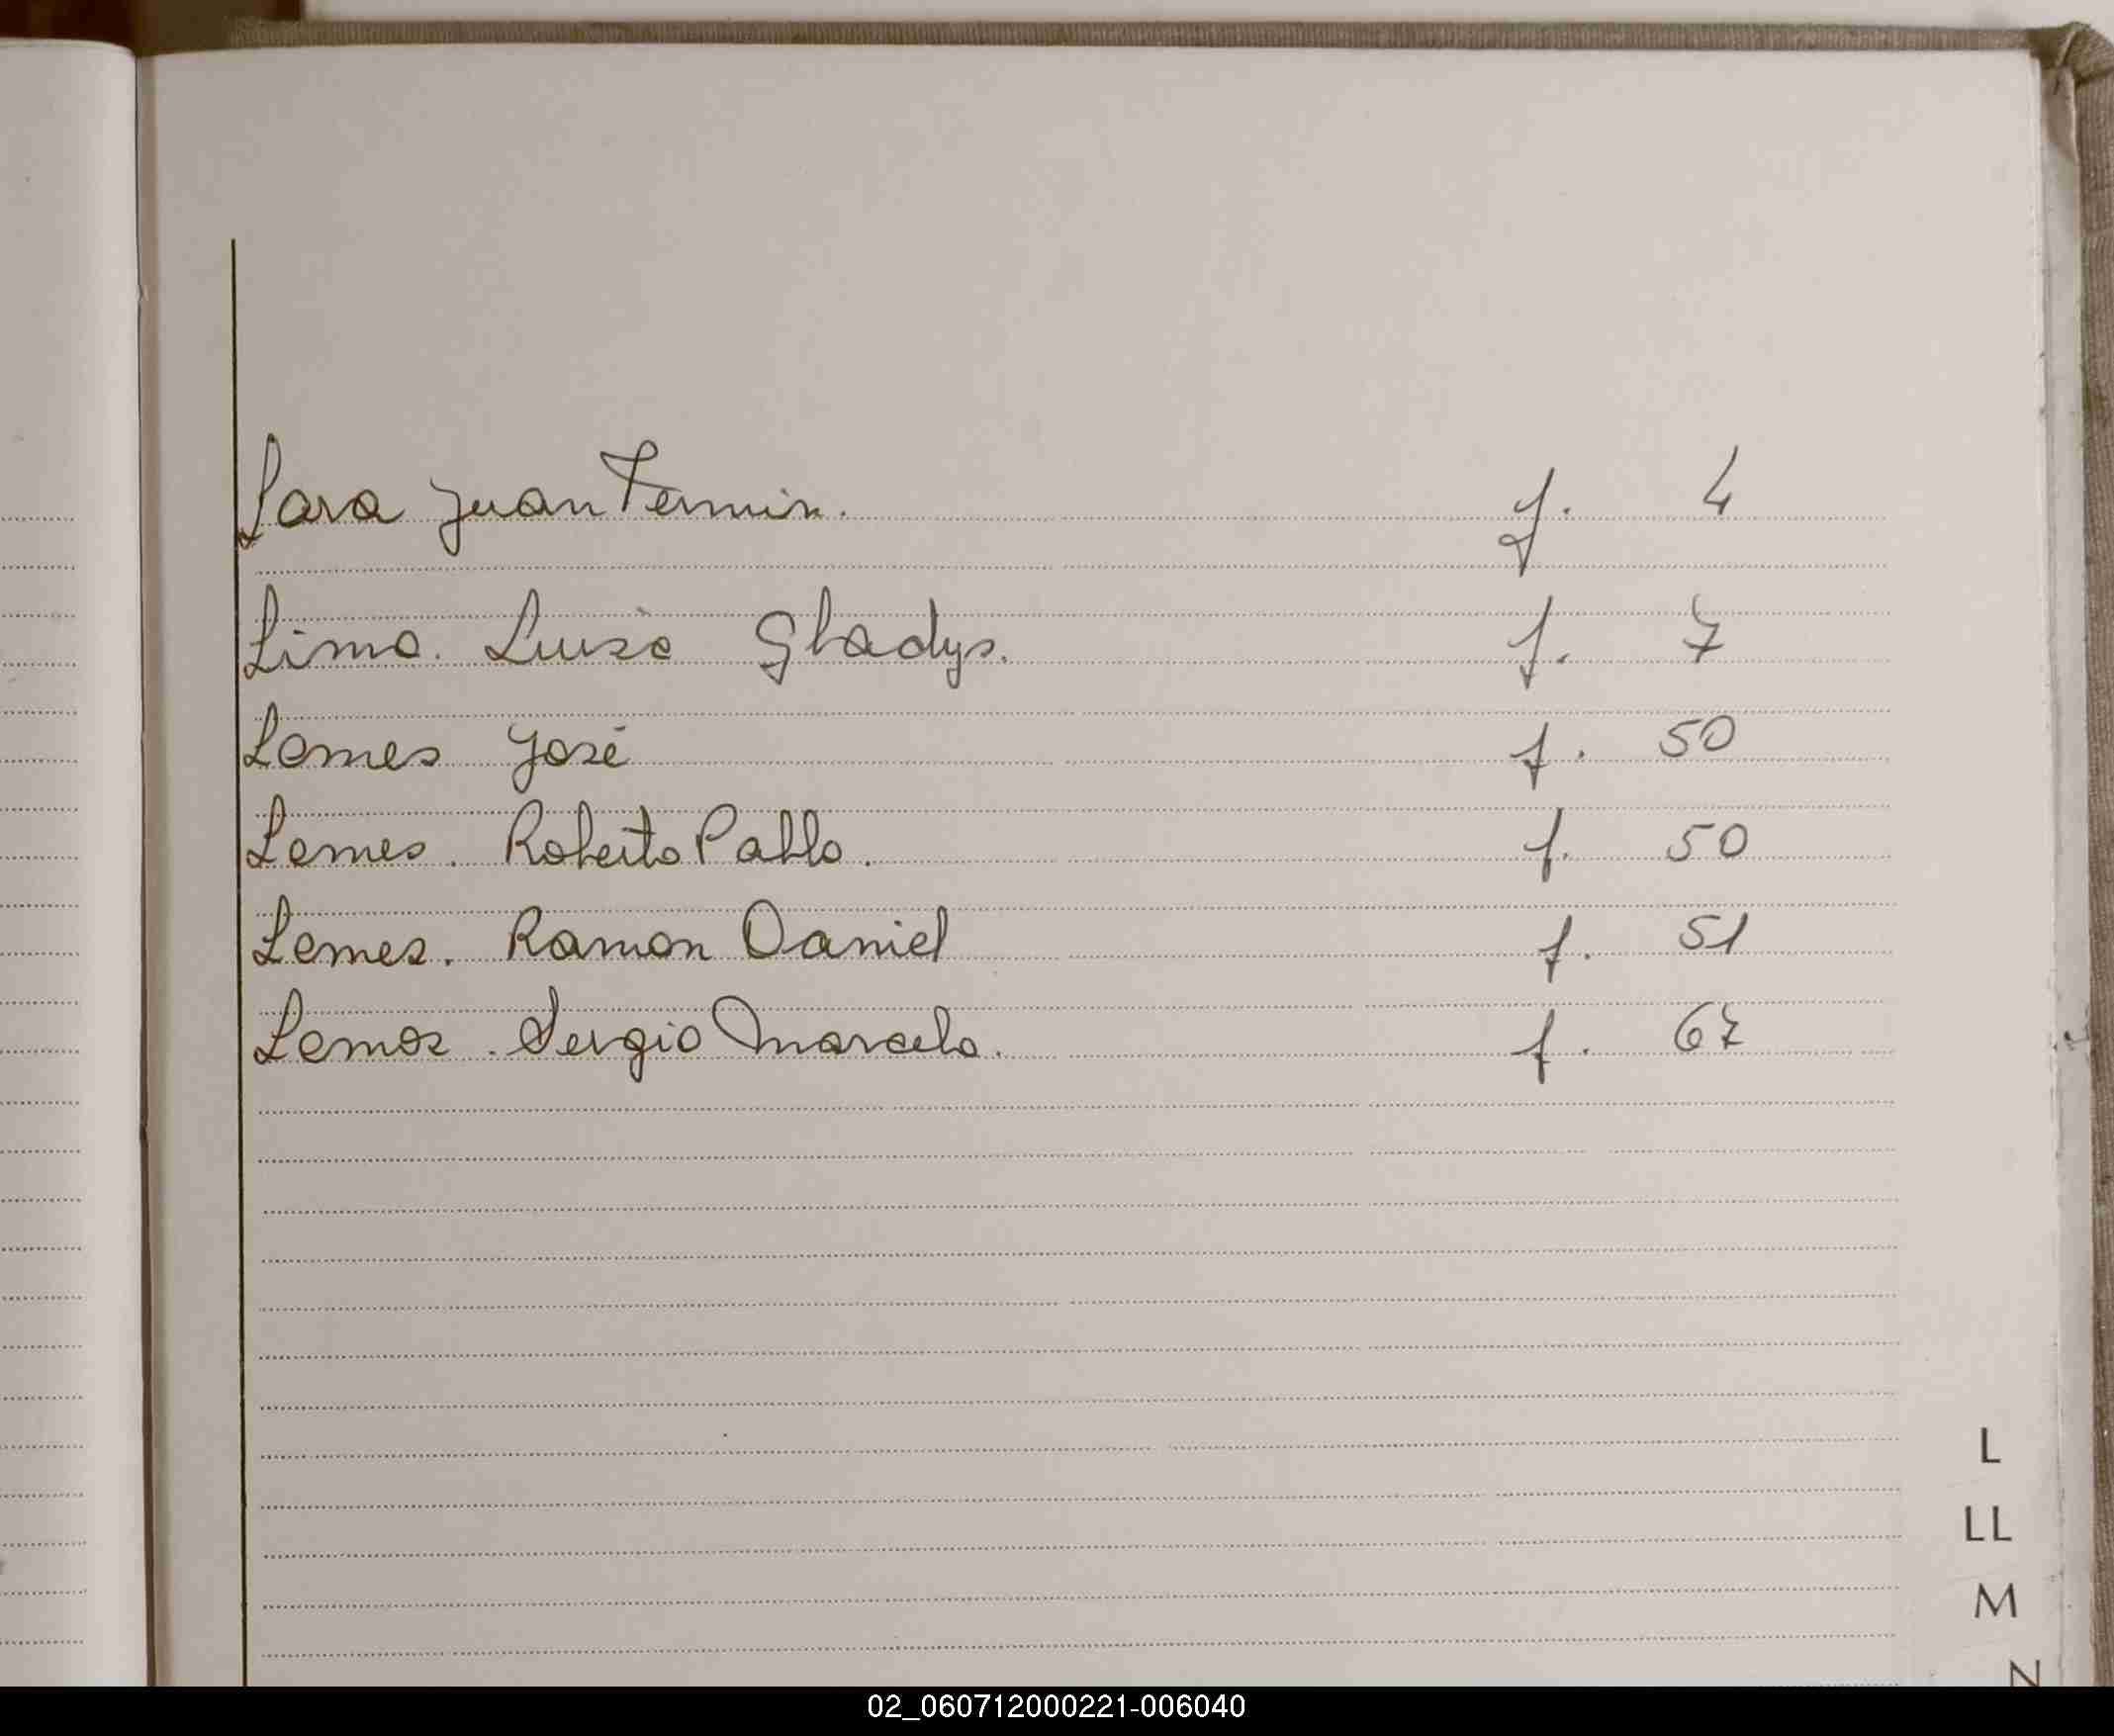 Lara Juan Fermin. f. 4
Lima. Luisa Gladys. f. 7
Lemes José f. 50
Lemes. Roberto Pablo. f. 50
Lemes. Ramon Daniel f. 51
Lemos. Sergio Marcelo. f. 67
L
LL
M
N
02_060712000221-006040